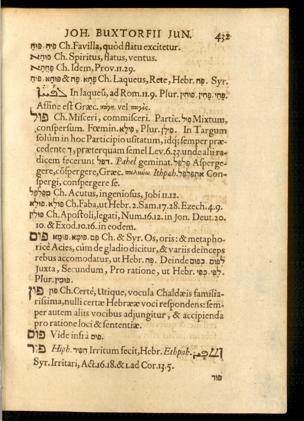 JOH. BUXTORFII JUN. 432
פוח. פיח Ch. Favilla, quòd flatu excitetur.
Ch. Spiritus, flatus, ventus.
Ch. Idem, Prov. 11.29.
פוח. פח & פחא Ch. Laqueus, Rete, Hebr. פח. Syr.
In laqueû, ad Rom. 11.9. Plur. פחין. פחי.
Affine est Græc. vel
פול Ch. Misceri, commisceri. Partic. Mixtum,
conspersum. Fœmin. פילא. Plur. פילן. In Targum
solùm in hoc Participio usitatum, idq; semper præ-
cedente ל, præterquam semel Lev. 6.23. unde alii ra-
dicem fecerunt Pahel geminat. פלפל Asperge-
gere, cōspergere, Græc. Ithpah. אתפלפל Con-
spergi, conspergere se.
Ch. Acutus, ingeniosus, Jobi 11.12.
פולא Ch. Faba, ut Hebr. 2. Sam. 17.28. Ezech. 4.9.
פולין Ch. Apostoli, legati, Num. 16.12. in Jon. Deut. 20.
10. & Exod. 10.16. in eodem.
פום פומא. פום Ch. & Syr. Os, oris: & metapho-
ricè Acies, cùm de gladio dicitur, & variis deinceps
rebus accomodatur, ut Hebr. פה. Deinde בפום. לפום
Juxta, Secundum, Pro ratione, ut Hebr. כפי. לפי.
Plur. פומין.
פון Ch. Certè, Utique, vocula Chaldæis familia-
rissima, nulli certæ Hebrææ voci respondens: sem-
per autem aliis vocibus adjungitur, & accipienda
pro ratione loci & sententiæ.
Vide infrà
פור Hiph. הפיר Irritum fecit, Hebr. Ethpah.
Syr. Irritari, Act. 16.18. & 1. ad Cor. 13.5.
פור